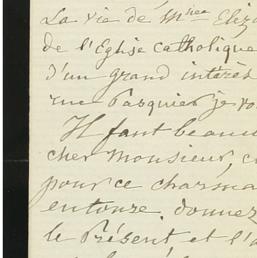 La vie de Miss Eliz
de l'Eglise catholique
d'un grand intérès
rue Pasquier je vo
Il faut beauc
cher Monsieur, c
pour ce charma
entoure. donnez
le Présent et l'a